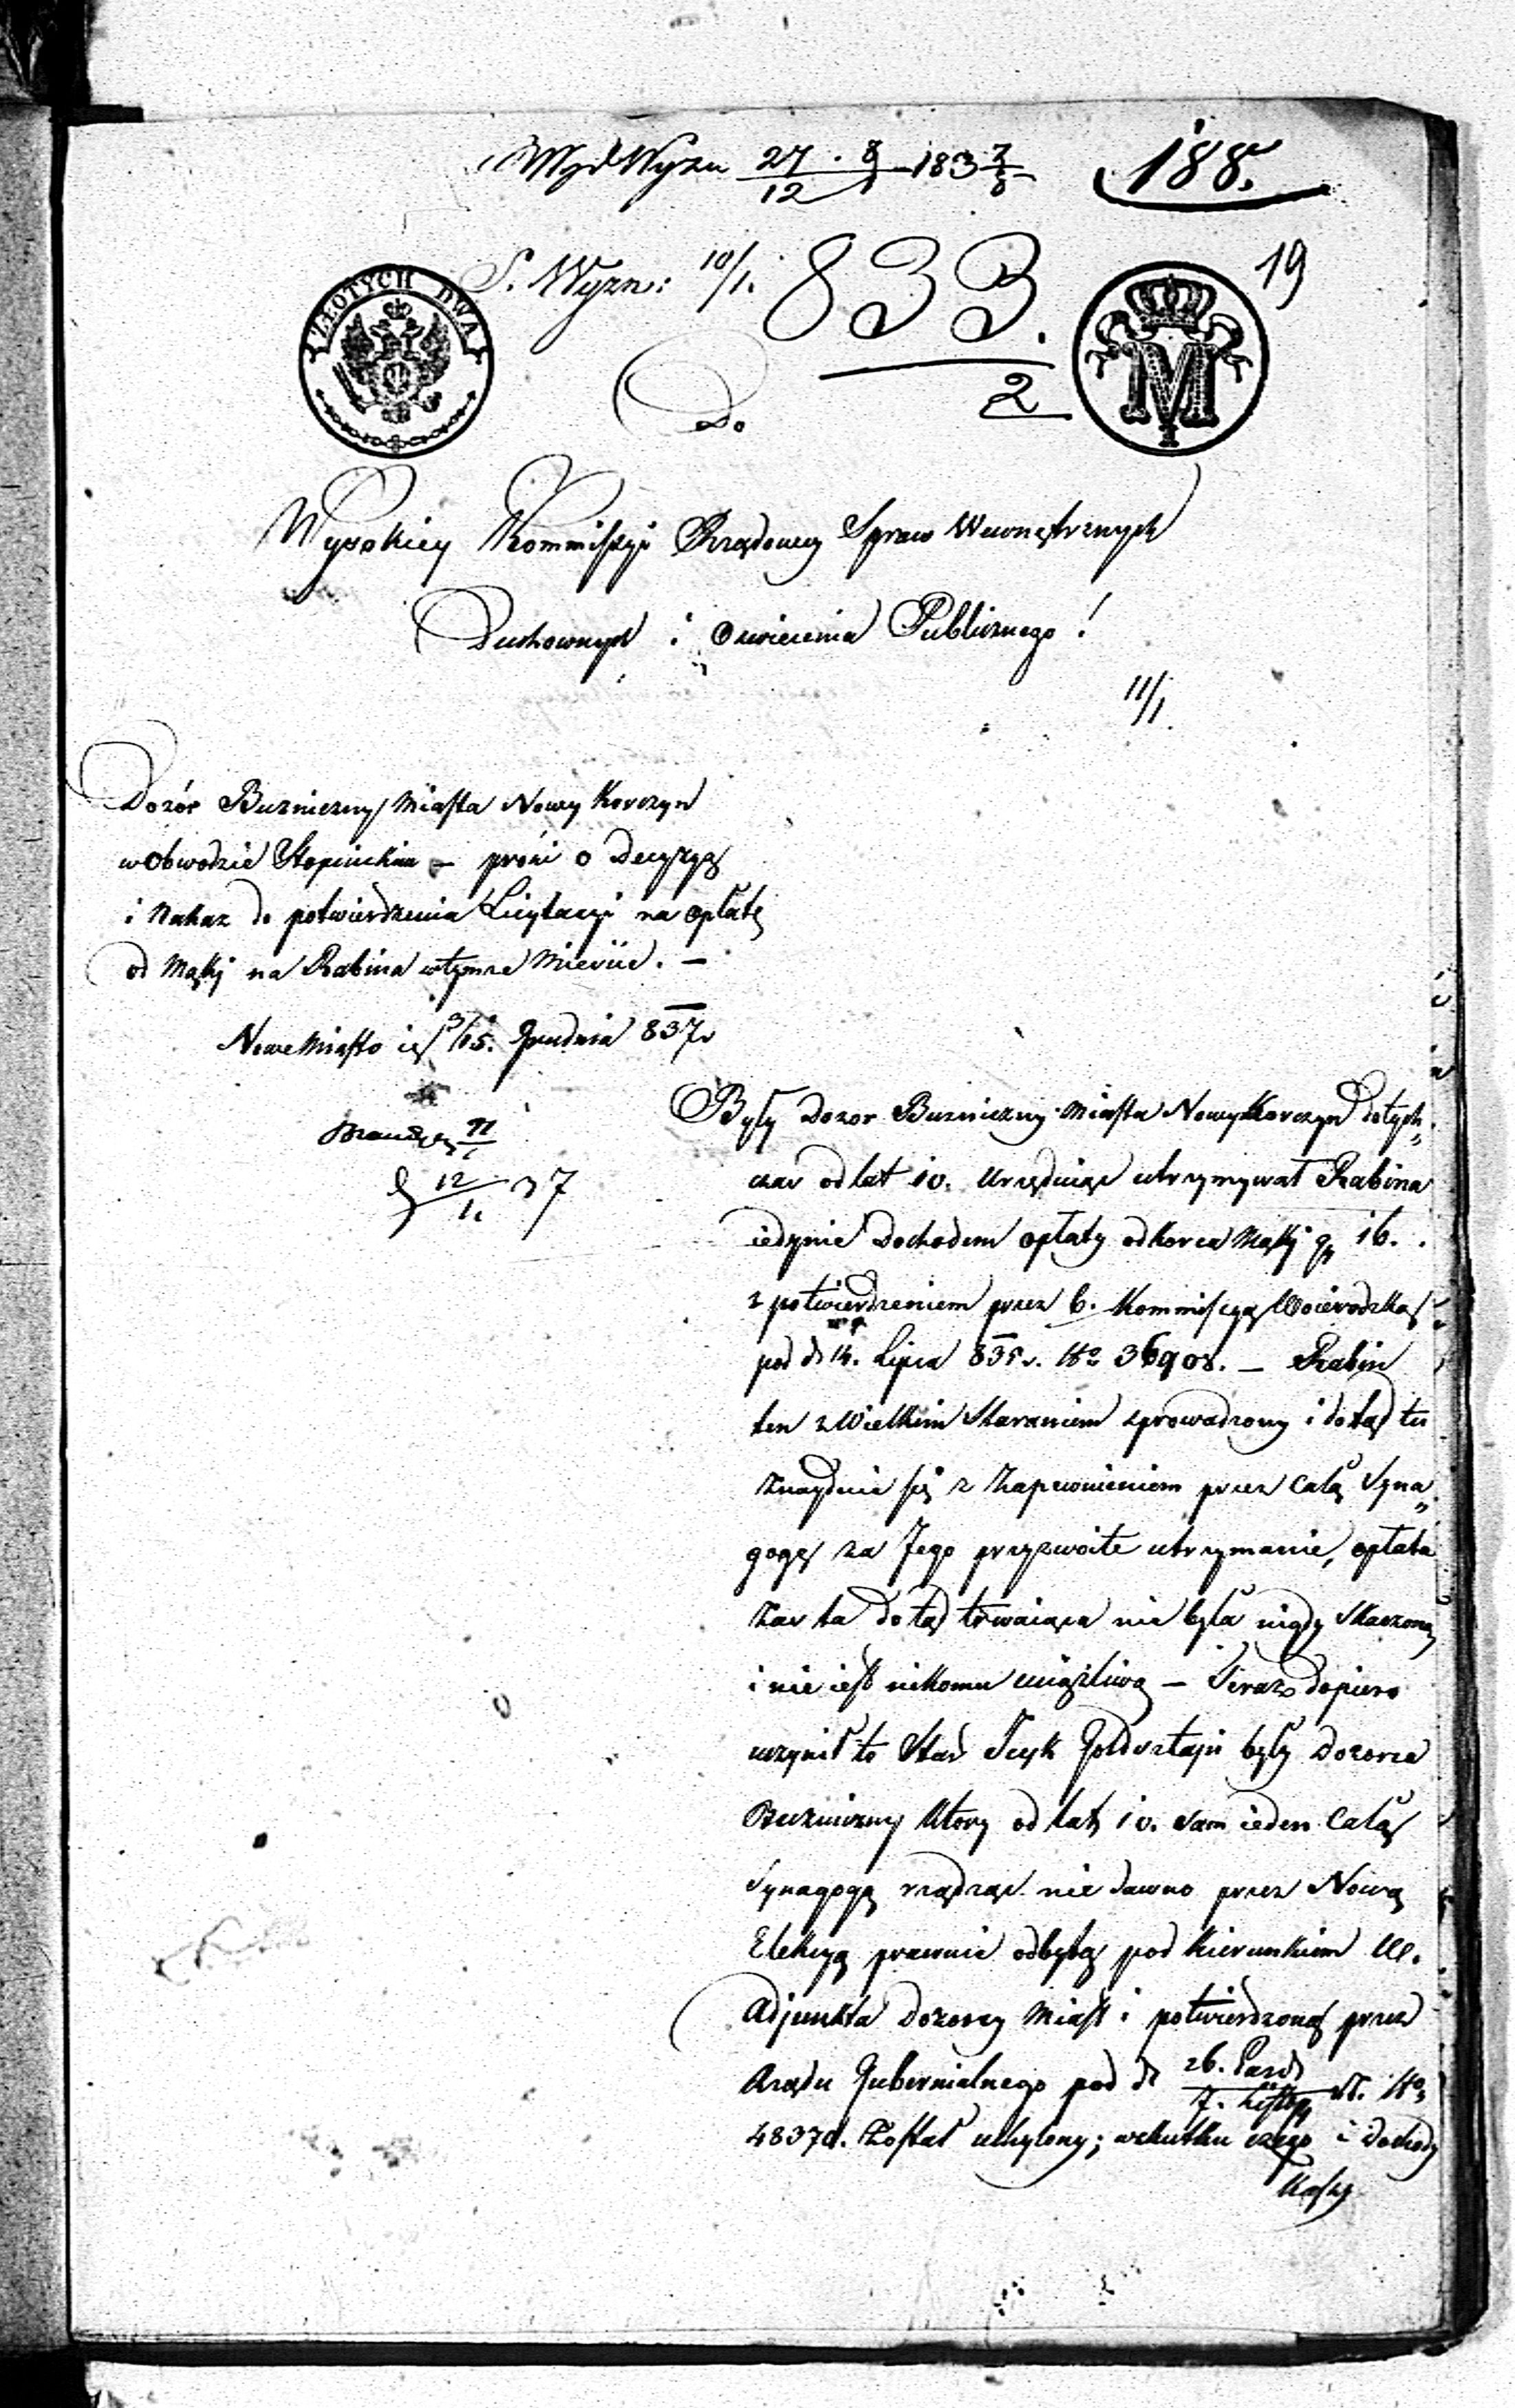 Wyd Wyzn 27/12 8/1 183 7/8 188.
S. Wyzn: 10/1. 833. 19
2
ZŁOTYCH DWA
M
Do
Wysokiey Kommissyi Rządowey Spraw Wewnętrznych
Duchownych i Oświecenia Publicznego!
11/1.
Dozór Bużniczny Miasta Nowy Korczyn
w Obwodzie Stopnickim – prosi o Decyzyą
i Nakaz do potwierdzenia Licytacyi na opłatę
od Mąki na Rabina w tymże Mieście. –
Nowe Miasto 3/15. Grudnia 837 r
11/1
12/1. 37
Były Dozor Bużniczny Miasta Nowy Korczyn dotych„
czas od lat 10. Urzędując utrzymywał Rabina
iedynie Dochodem opłaty od korca Mąki gr 16.
z potwierdzeniem przez b. Kommissyą Woiewodzką
pod d. 14. Lipca 835 r. No 36908. – Rabin
ten z Wielkim Staraniem sprowadzony i dotąd tu
znayduie się z Zapewnieniem przez Całą Syna„
gogę za Jego przyzwoite utrzymanie, opłata
zaś ta dotąd trwaiąca nie była nigdy Skarżoną
i nie iest nikomu uciążliwą – Teraz dopiero
uczynił to Star Icyk Goldsztajn były Dozorca
Bużniczny który od lat 10. sam ieden Całą
Synagogą rządząc nie dawno przez Nową
Elekcyą prawnie odbytą pod kierunkiem W.
Adjunkta Dozorcy Miast i potwierdzoną przez
Rządu Gubernialnego pod d. 26. Paźd/7. Listop. No
48370. Został uchylony; w skutku czego i dochody